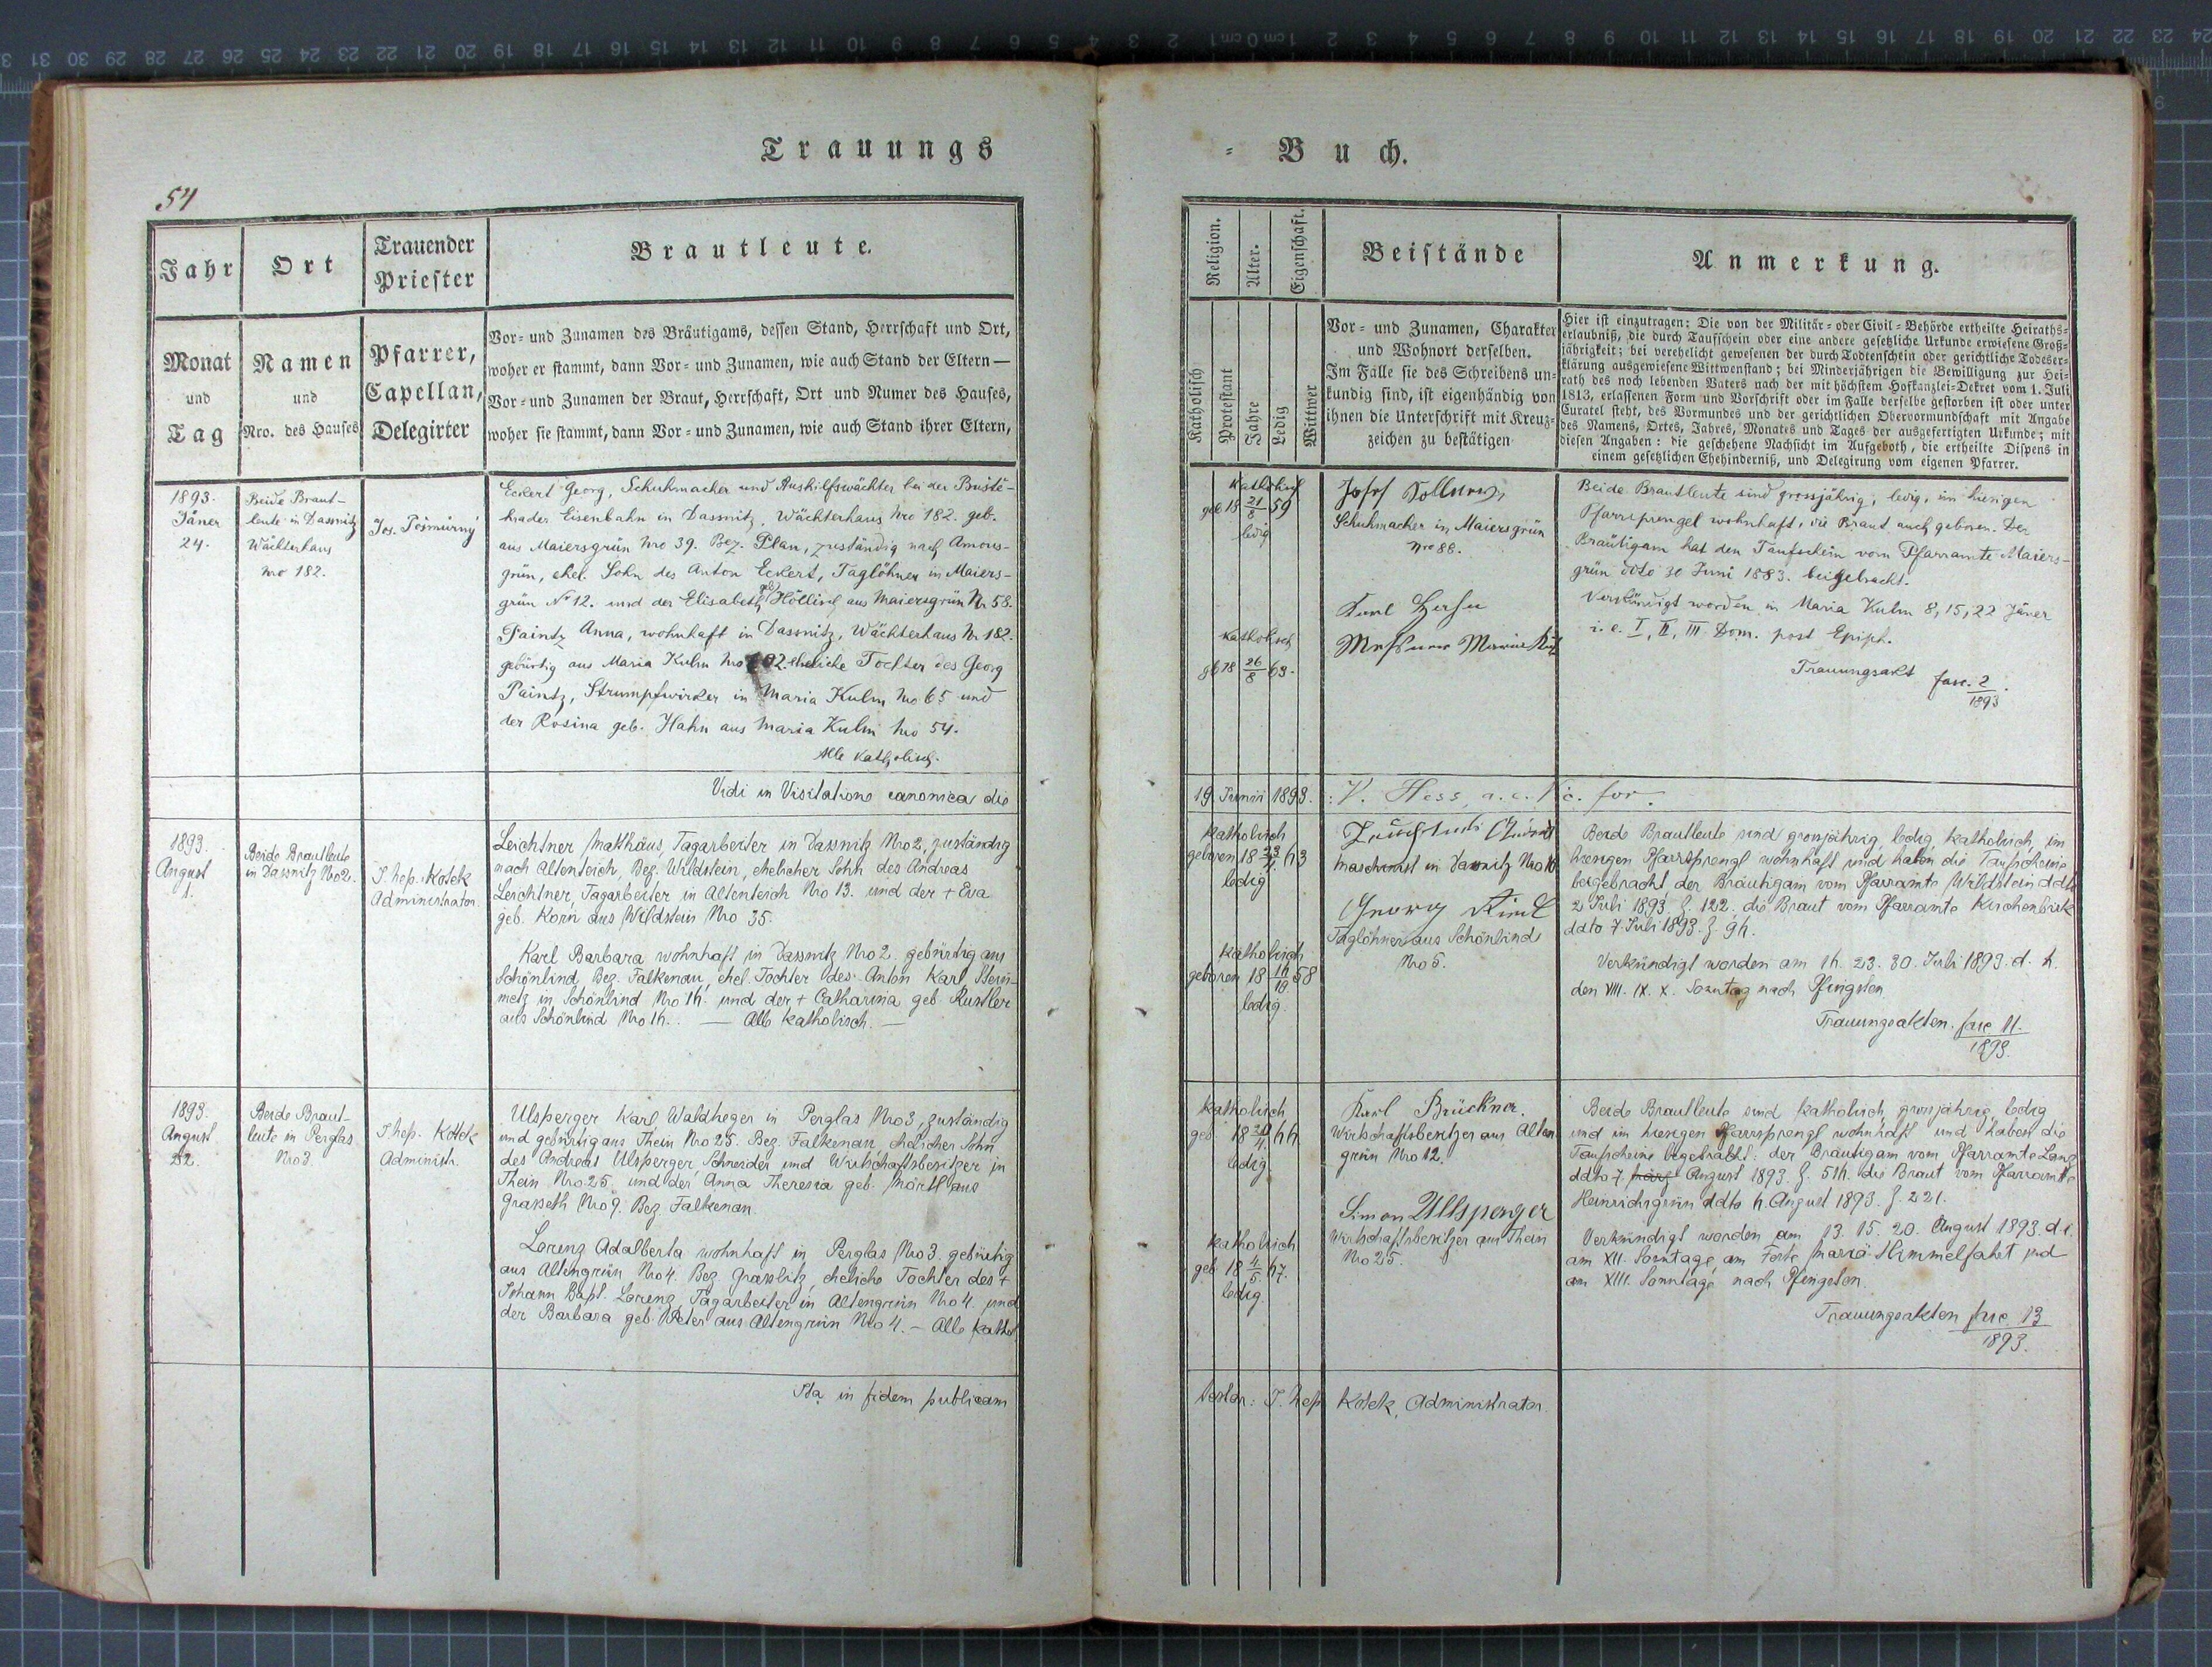 Trauungs
= Buch.
54
Jahr
Ort
Trauender
Priester
Brautleute.
Monat
und
Tag
Namen
und
Nro. des Hauses
Pfarrer,
Capellan,
Delegirter
Vor- und Zunamen des Bräutigams, dessen Stand, Herrschaft und Ort,
woher er stammt, dann Vor- und Zunamen, wie auch Stand der Eltern —
Vor- und Zunamen der Braut, Herrschaft, Ort und Numer des Hauses,
woher sie stammt, dann Vor- und Zunamen, wie auch Stand ihrer Eltern,
1893.
Jäner
24.
Beide Braut-
leute in Dassnitz
Wächterhaus
Nro 182.
Jos. Pojmürný
Eckert Georg, Schuhmacher und Aushilfswächter bei der Buště-
hrader Eisenbahn in Dassnitz, Wächterhaus Nro 182. geb.
aus Maiersgrün Nro 39. Bez. Plan, zuständig nach Amons-
grün, ehel. Sohn des Anton Eckert, Taglöhner in Maiers-
grün No 12. und der Elisabeth geb. Höllisch aus Maiersgrün Nr 58.
Paintz Anna, wohnhaft in Dassnitz, Wächterhaus Nr. 182.
gebürtig aus Maria Kulm Nro 82. eheliche Tochter des Georg
Paintz, Strumpfwirker in Maria Kulm Nro 65 und
der Rosina geb. Hahn aus Maria Kulm Nro 54.
Alle katholisch.
Vidi in Visitatione canonica die
1893.
August
1.
Beide Brautleute
in Dassnitz Nro 2.
P. hep. Kotek
Administrator
Leichtner Matthäus, Tagarbeiter in Dassnitz Nro 2, zuständig
nach Altenteich, Bez. Wildstein, ehelicher Sohn des Andreas
Leichtner, Tagarbeiter in Altenteich Nro 13. und der + Eva
geb. Korn aus Wildstein Nro 35.
Karl Barbara wohnhaft in Dassnitz Nro 2. gebürtig aus
Schönlind, Bez. Falkenau, ehel. Tochter des Anton Karl, Stein-
metz in Schönlind Nro 14. und der + Catharina geb. Rustler
aus Schönlind Nro 14. — Alle katholisch. —
1893.
August
22.
Beide Braut-
leute in Perglas
Nro 3
P. hep. Kotek
Administr.
Ulsperger Karl, Waldheger in Perglas Nro 3, zuständig
und gebürtig aus Thein Nro 25. Bez. Falkenau, ehelicher Sohn
des Andreas Ulsperger, Schneider und Wirtschaftsbesitzer in
Thein Nro 25. und der Anna Theresia geb. Mörtl aus
Grasseth Nro 9. Bez. Falkenau.
Lorenz Adalberta wohnhaft in Perglas Nro 3. gebürtig
aus Altengrün Nro 4. Bez. Grasslitz, eheliche Tochter des +
Johann Bapt. Lorenz, Tagarbeiter in Altengrün Nro 4. und
der Barbara geb. Peter aus Altengrün Nro 4. — Alle kathol
Ita in fidem publicam
Religion.
Alter.
Eigenschaft.
Beistände
Anmerkung.
Katholisch
Protestant
Jahre
Ledig
Wittwer
Vor- und Zunamen, Charakter
und Wohnort derselben.
Im Falle sie des Schreibens un-
kundig sind, ist eigenhändig von
ihnen die Unterschrift mit Kreuz-
zeichen zu bestätigen
Hier ist einzutragen: Die von der Militär- oder Civil-Behörde ertheilte Heiraths-
erlaubniß, die durch Taufschein oder eine andere gesetzliche Urkunde erwiesene Groß-
jährigkeit; bei verehelicht gewesenen der durch Todtenschein oder gerichtliche Todeser-
klärung ausgewiesene Wittwenstand; bei Minderjährigen die Bewilligung zur Hei-
rath des noch lebenden Vaters nach der mit höchstem Hofkanzlei-Dekret vom 1. Juli
1813, erlassenen Form und Vorschrift oder im Falle derselbe gestorben ist oder unter
Curatel steht, des Vormundes und der gerichtlichen Obervormundschaft mit Angabe
des Namens, Ortes, Jahres, Monates und Tages der ausgefertigten Urkunde; mit
diesen Angaben: die geschehene Nachsicht im Aufgeboth, die ertheilte Dispens in
einem gesetzlichen Ehehinderniß, und Delegirung vom eigenen Pfarrer.
katholisch
geb 18 21/8 59
ledig
katholisch
geb 18 26/8 63.
Josef
Schuhmacher in Maiersgrün
Nro 88.
Karl
Beide Brautleute sind grossjährig, ledig, im hierigen
Pfarrsprengel wohnhaft, die Braut auch geboren. Der
Bräutigam hat den Taufschein vom Pfarramte Maiers-
grün ddto 30 Juni 1883. beigebracht.
Verkündigt worden in Maria Kulm 8, 15, 22 Jäner
i. e. I, II, III. Dom. post Epiph.
Trauungsakt fasc. 2/1893.
19 Junii 1893. V. Hess, a. c. Vic. for.
katholisch
geboren 18 63
ledig
katholisch
geboren 18 58
ledig.
Maschinist in Dassnitz Nro 16
Georg
Taglöhner aus Schönlind
Nro 5.
Beide Brautleute sind grossjährig, ledig, katholisch, im
hierigen Pfarrsprengl wohnhaft und haben die Taufscheine
beigebracht der Bräutigam vom Pfarramte Wildstein ddto
2 Juli 1893 Z. 122. die Braut vom Pfarramte Kirchenbirk
ddto 7. Juli 1893. Z. 94.
Verkündigt worden am 16. 23. 30. Juli 1893. d. h.
den VIII. IX. X. Sonntag nach Pfingsten
Trauungsakten. fasc. 11./1893.
katholisch
geb. 18 66
ledig.
katholisch
geb. 18 4/5 67.
ledig.
Karl Brückner.
Wirtschaftsbesitzer aus Alten
grün Nro 12.
Simon Ullsperger
Wirtschaftsbesitzer aus Thein
Nro 25.
Beide Brautleute sind katholisch, grossjährig, ledig
und im hierigen Pfarrsprengl wohnhaft und haben die
Taufscheine beigebracht: der Bräutigam vom Pfarramte Lanz
ddto 7. August 1893. Z. 514. die Braut vom Pfarramte
Heinrichsgrün ddto 4. August 1893. Z. 221.
Verkündigt worden am 13. 15. 20. August 1893. d. i.
am XII. Sonntage, am Feste Mariä Himmelfahrt und
am XIII. Sonntage nach Pfingsten.
Trauungsakten fasc 13/1893.
testor: P. hep Kotek, Administrator.